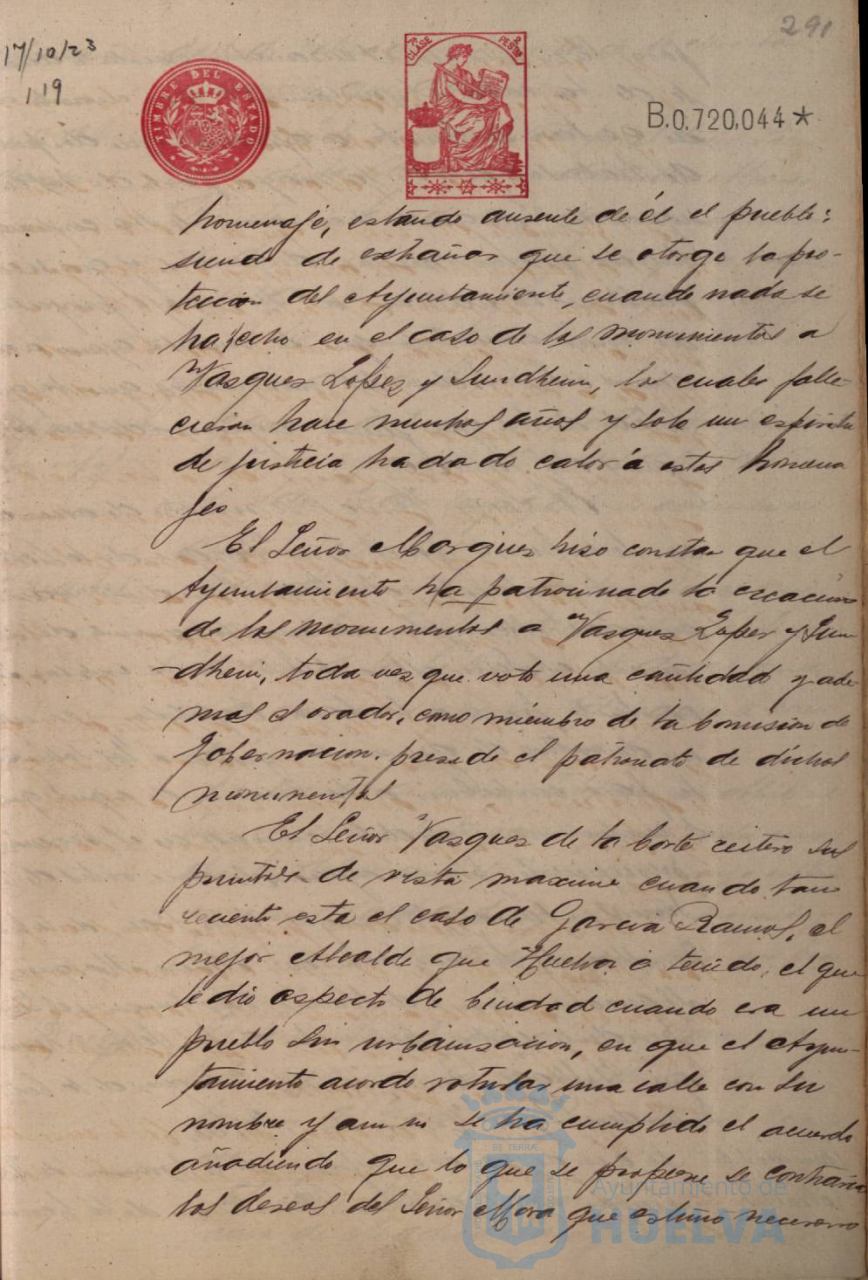 291
17/10/23
119
TIMBRE DEL ESTADO
7ª CLASE PESETAS
B.0,720,044*
homenaje, estando ausente de él el pueblo;
siendo de extrañar que se otorge la pro-
teccion del Ayuntamiento, cuando nada se
ha hecho en el caso de los monumentos a
Vasquez Lopez y Sundheim, los cuales falle-
cieron hace muchos años y solo un espiritu
de justicia ha dado calor a estos homena
jes
El Señor Marquez hiso constar que el
Ayuntamiento ha patrocinado la
de los monumentos a Vasquez Lopez y Sun-
dheim, toda vez que voto una cantidad y ade
mas el orador, como miembro de la Comision de
Gobernacion, preside el patronato de dichos
monumentos
El Señor Vasquez de la Corte reitero sus
puntos de vista maxime cuando tan
reciente esta el caso de Garcia Ramos, el
mejor Alcalde que Huelva a tenido, el que
le dio aspecto de Ciudad cuando era un
pueblo sin urbanisacion, en que el Ayun-
tamiento acordo rotular una calle con su
nombre y aun no se ha cumplido el acuerdo
añadiendo que lo que se propone es
los deseos del Señor Mora que estimo necesario
Ayuntamiento de
HUELVA